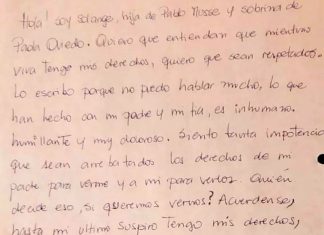 Hola! soy Solange, hija de Pablo Musse y sobrina de
Paola Oviedo. Quiero que entiendan que mientras
viva tengo mis derechos, quiero que sean respetados.
Lo escribo porque no puedo hablar mucho, lo que
han hecho con mi padre y mi tía, es inhumano.
humillante y muy doloroso. Siento tanta impotencia
que sean arrebatados los derechos de mi
padre para verme y a mi para verlos. Quién
decide eso, si queremos vernos? Acuerdense,
hasta mi ultimo suspiro tengo mis derechos,